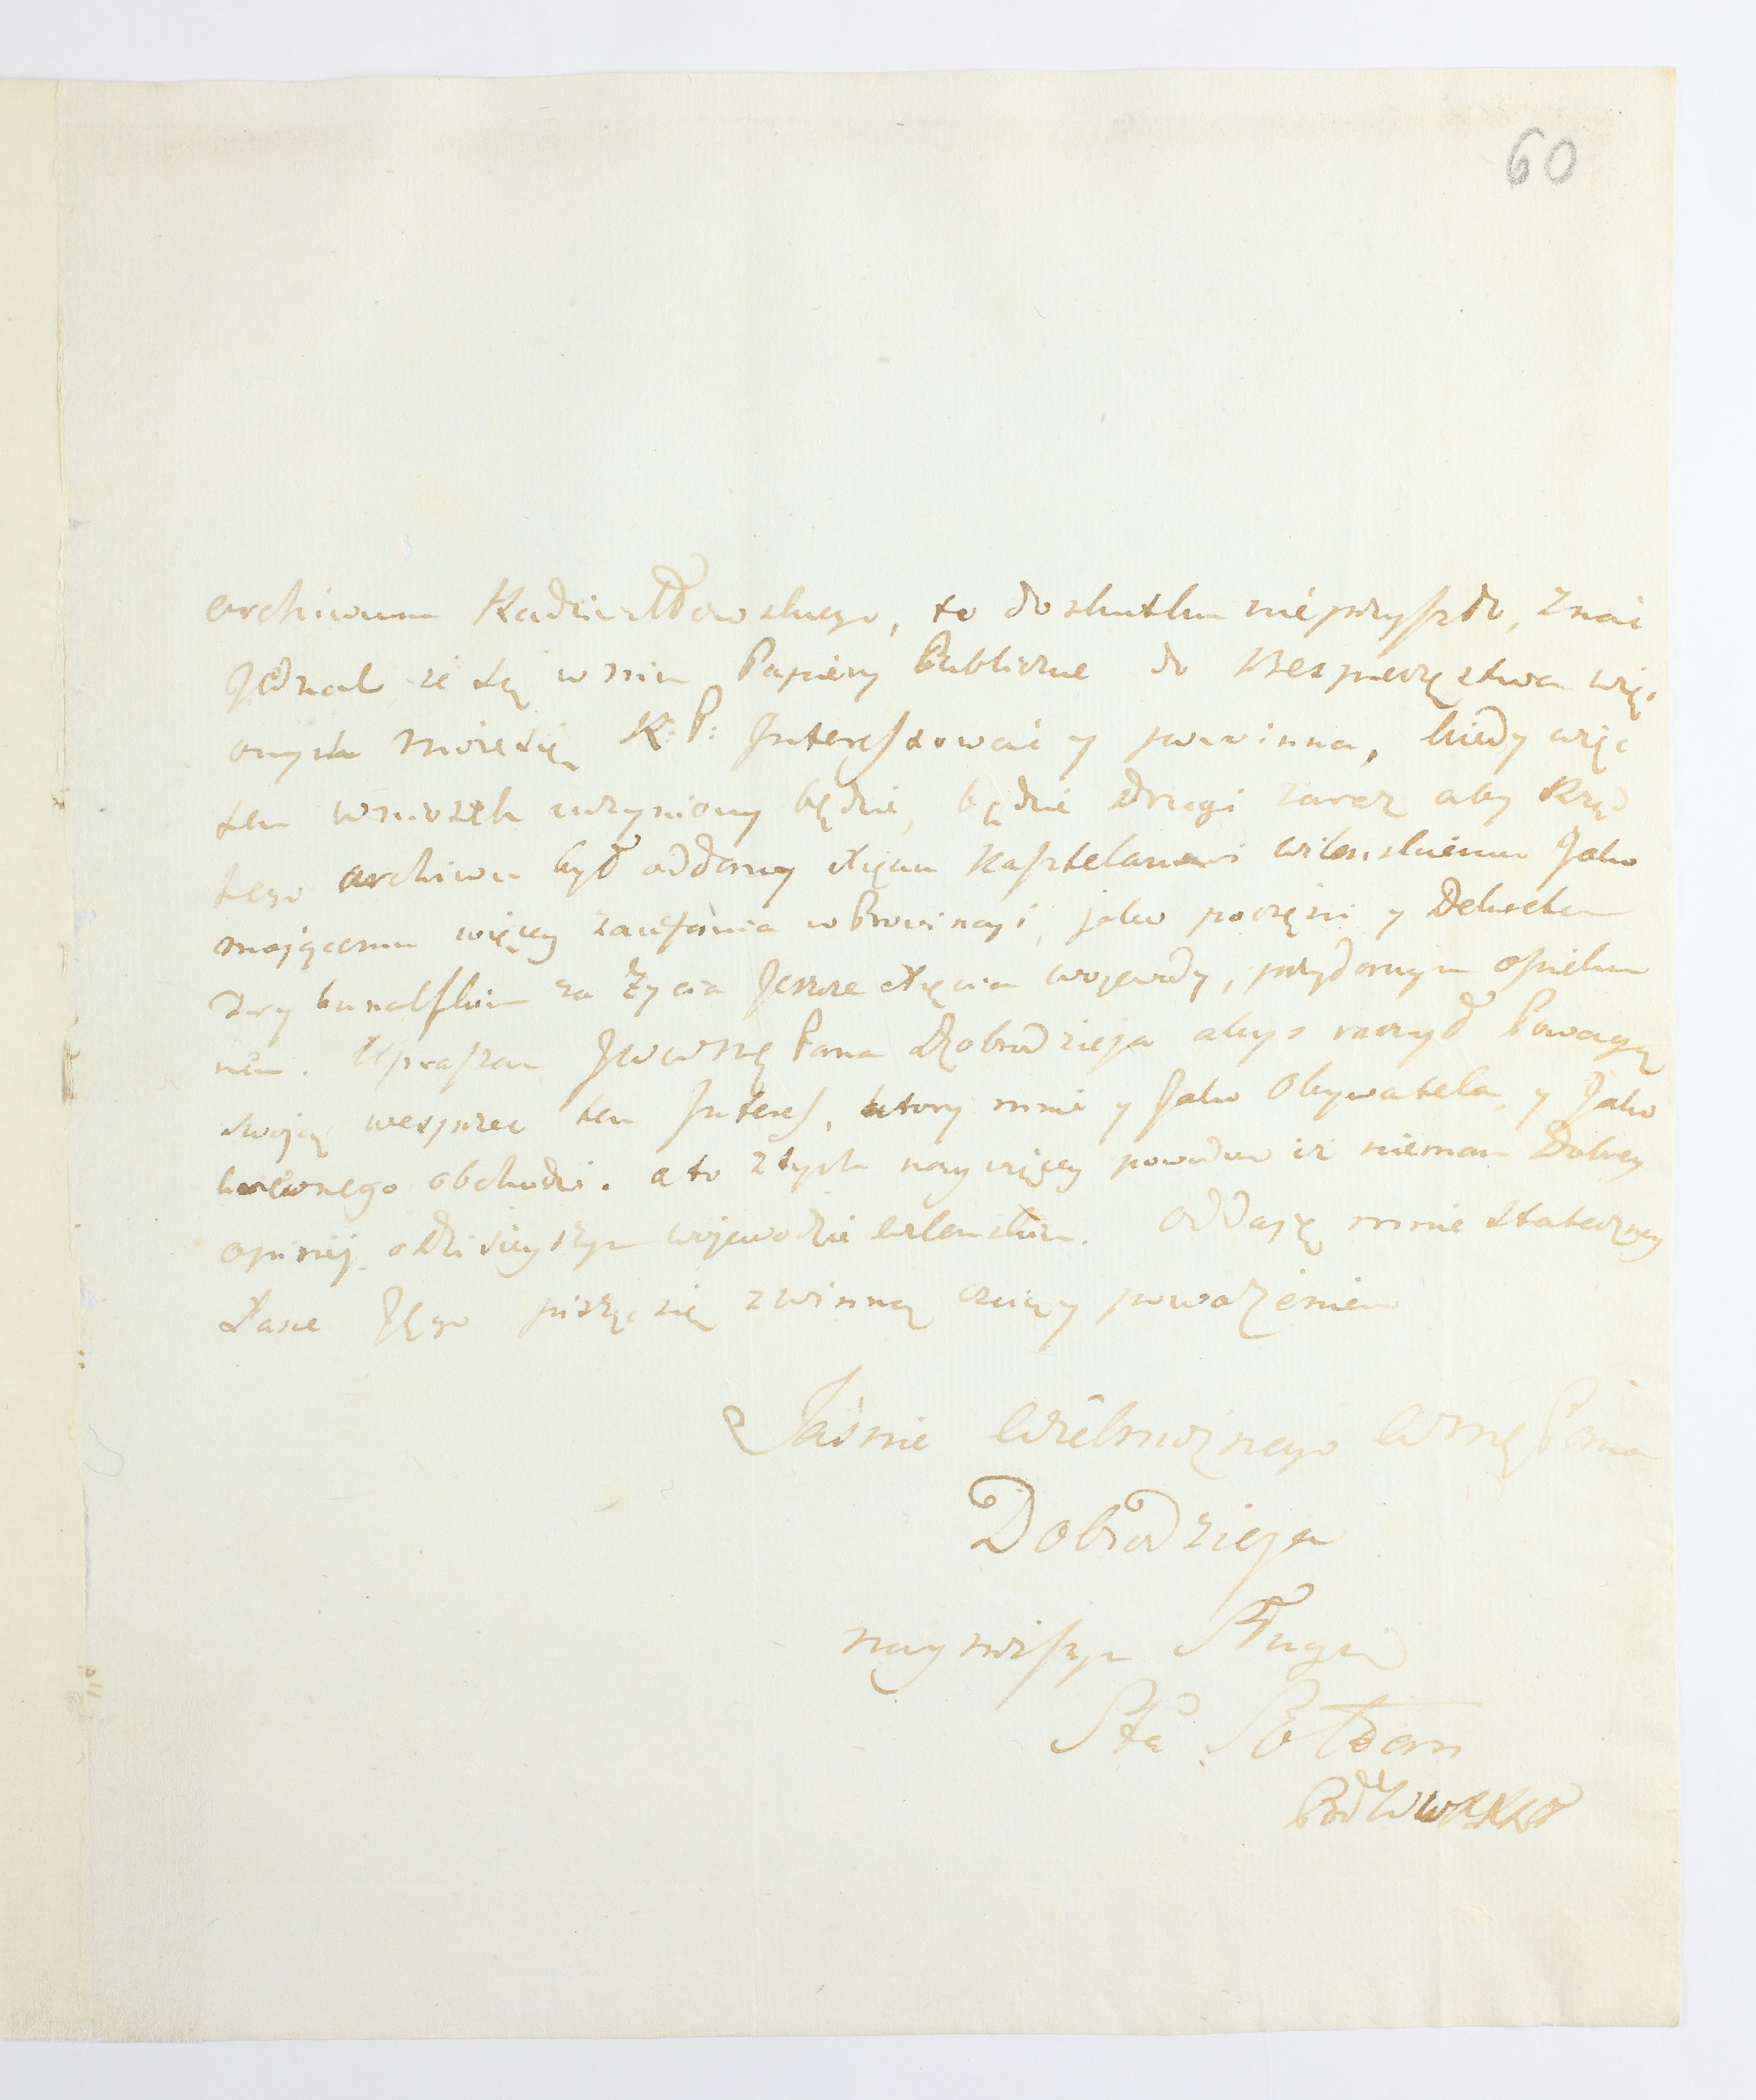 60
archiwum Radziwiłłowskiego, to do skutku nie przyszło, znać
Jednak że są w nim Papiery Publiczne do Bespieczęstwa więc
onych może się R: P: Interessować y powinna, kiedy więc
ten wniosek uczyniony będzie, będzie drugi zaraz aby Rząd
tego archiwu był oddany Xięciu Kasztelanowi wilenskiemu Jako
mającemu więcey zaufania w Prowincyi, jako y Dekretem
za życia Jeszcze Xięcia wojewody, przydanym opieku
nem. Upraszam JWWMę Pana Dobrodzieja abyś raczył Powagą
swoją wesprzec ten Interes, ktory mnie y Jako Obywatela, y Jako
krewnego obchodzi. a to z tych naywięcey powodow iż niemam Dobrey
opinij o dzisieyszym wojewodzie wilenskim. Oddaję mnie stateczney
Łasce Jego piszęc się z winną czcią y poważeniem
Jaśnie Wielmożnego WMę Pana
Dobrodzieja
nayniższym Sługą
Sta Sołtan